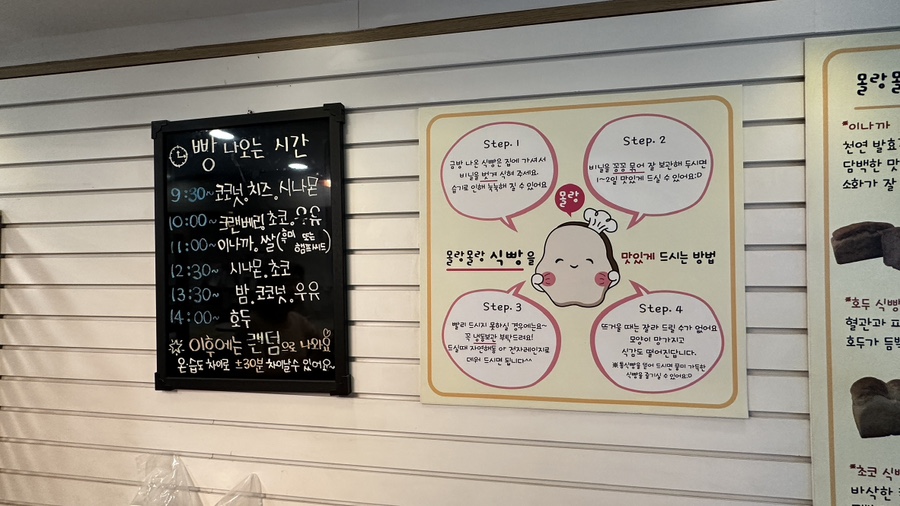 빵 나오는 시간
9:30~ 코코넛, 치즈, 시나몬
10:00~ 크랜베리, 초코, 우유
11:00~ 이나까, 쌀(흑미 또는 햄프씨드)
12:30~ 시나몬, 초코
13:30~ 밤, 코코넛, 우유
14:00~ 호두
이후에는 랜덤으로 나와요
온·습도 차이로 ±30분 차이날 수 있어요~
Step. 1
금방 나온 식빵은 집에 가셔서
비닐을 벗겨 식혀 주세요.
습기로 인해 눅눅해 질 수 있어요
Step. 2
비닐을 꽁꽁 묶어 잘 보관해 두시면
1~2일 맛있게 드실 수 있어요:D
몰랑
몰랑몰랑 식빵을 맛있게 드시는 방법
Step. 3
빨리 드시지 못하실 경우에는요~
꼭 냉동보관 부탁드려요!
드실때 자연해동 or 전자레인지로
데워 드시면 됩니다^^
Step. 4
뜨거울 때는 잘라 드릴 수가 없어요
모양이 망가지고
식감도 떨어진답니다.
※통식빵을 뜯어 드시면 풍미 가득한
식빵을 즐기실 수 있어요:D
몰랑몰
*이나까
천연 발효
담백한 맛
소화가 잘
*호두 식빵
혈관과 피
호두가 듬뿍
*초코 식빵
바삭한